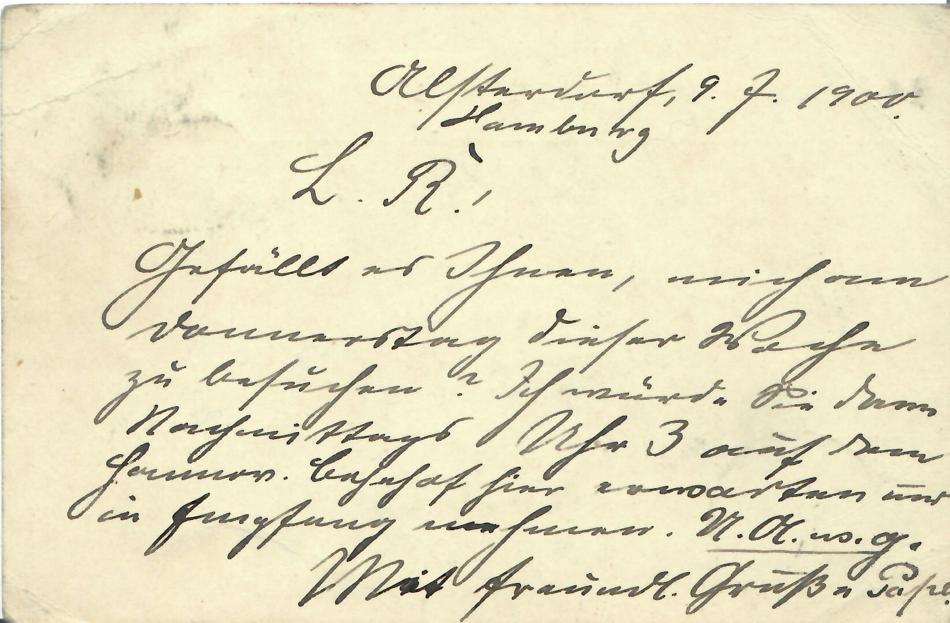 Alsterdorf, 9. 7. 1900.
Hamburg
L. R.!
Gefällt es Ihnen, mich am
Donnerstag dieser Woche
zu besuchen? Ich würde Sie dann
Nachmittags Uhr 3 auf dem
Hannov. Bahnhof hier erwarten und
in Empfang nehmen. U. A. w. g.
Mit freundl. Gruße